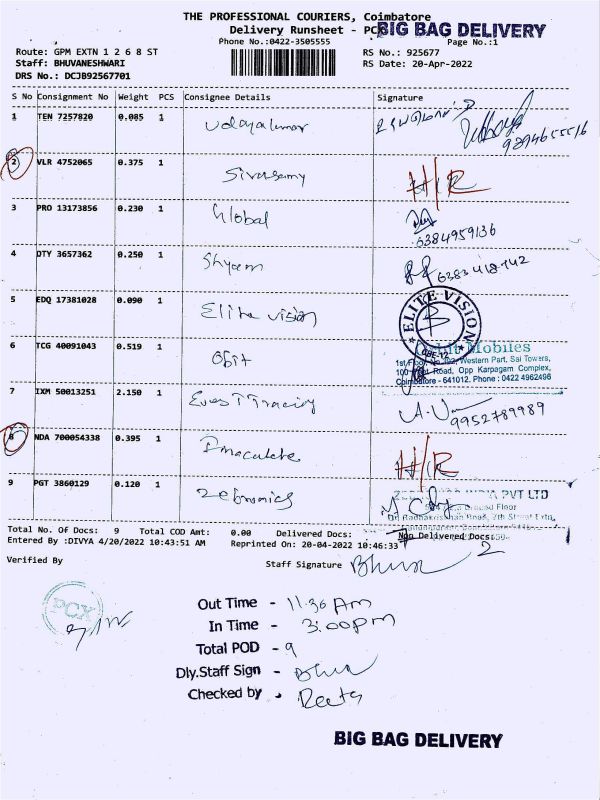 THE PROFESSIONAL COURIERS, Coimbatore
Delivery Runsheet - PCX
BIG BAG DELIVERY
Phone No.:0422-3505555
Page No.:1
Route: GPM EXTN 1 2 6 8 ST
RS No.: 925677
Staff: BHUVANESHWARI
RS Date: 20-Apr-2022
DRS No.: DCJB92567701
S No Consignment No Weight PCS Consignee Details Signature
1 TEN 7257820 0.085 1 Udayakumar
9294655516
2 VLR 4752065 0.375 1 Sivasamy H/R
3 PRO 13173856 0.230 1 Global
6384959136
4 DTY 3657362 0.250 1 Shyam 6383418742
5 EDQ 17381028 0.090 1 Elite vision
ELITE VISION
CBE-12
6 TCG 40091043 0.519 1 Obit
Mobiles
1st Floor, No. Western Part, Sai Towers,
100 Feet Road, Opp Karpagam Complex,
Coimbatore - 641012. Phone : 0422 4962496
7 IXM 50013251 2.150 1
9952789989
8 NDA 700054338 0.395 1 H/R
9 PGT 3860129 0.120 1 Zebronics
INDIA PVT LTD
Ground Floor
Total No. Of Docs: 9 Total COD Amt: 0.00 Delivered Docs:
Non Delivered Docs:
2
Entered By :DIVYA 4/20/2022 10:43:51 AM Reprinted On: 20-04-2022 10:46:33
Verified By
Staff Signature
PCX
Out Time - 11.30 Am
In Time - 3:00pm
Total POD - 9
Dly.Staff Sign -
Checked by -
BIG BAG DELIVERY